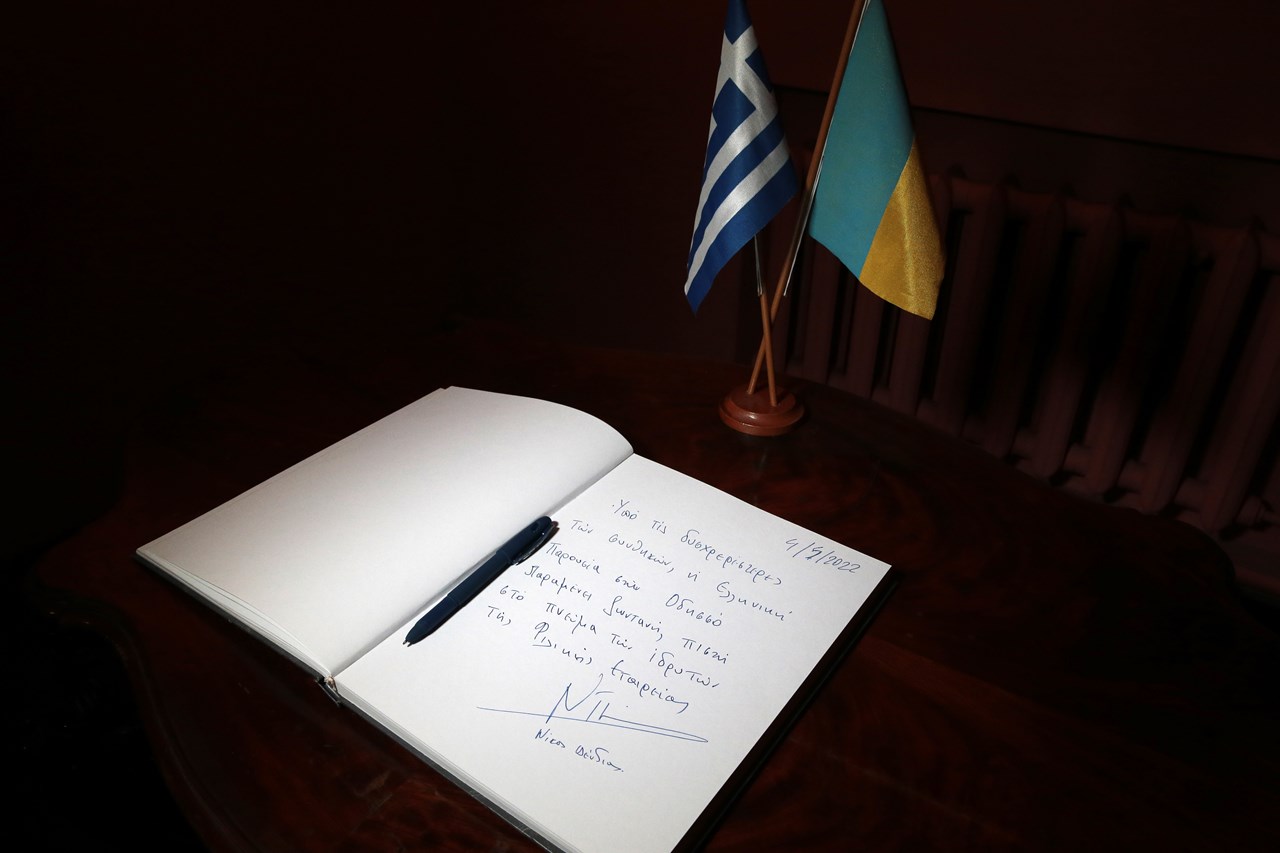 4/5/2022
Υπό τις δυσχερέστερες
των συνθηκών, η Ελληνική
Παρουσία στην Οδησσό
παραμένει ζωντανή, πιστή
στο πνεύμα των ιδρυτών
της Φιλικής Εταιρείας
Νίκος Δένδιας